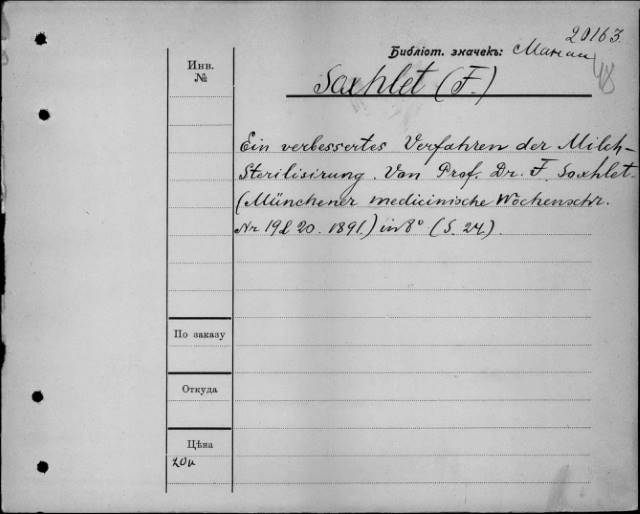 20163.
Библіот. значекъ:
Инв.
№
Soxhlet (F.)
Ein verbessertes Verfahren der Milch-
Sterilisirung. Von Prof. Dr. F. Soxhlet.
(Münchener medicinische Wochenschr.
Nr 19 & 20. 1891.) in 8° (S. 24).
По заказу
Откуда
Цѣна